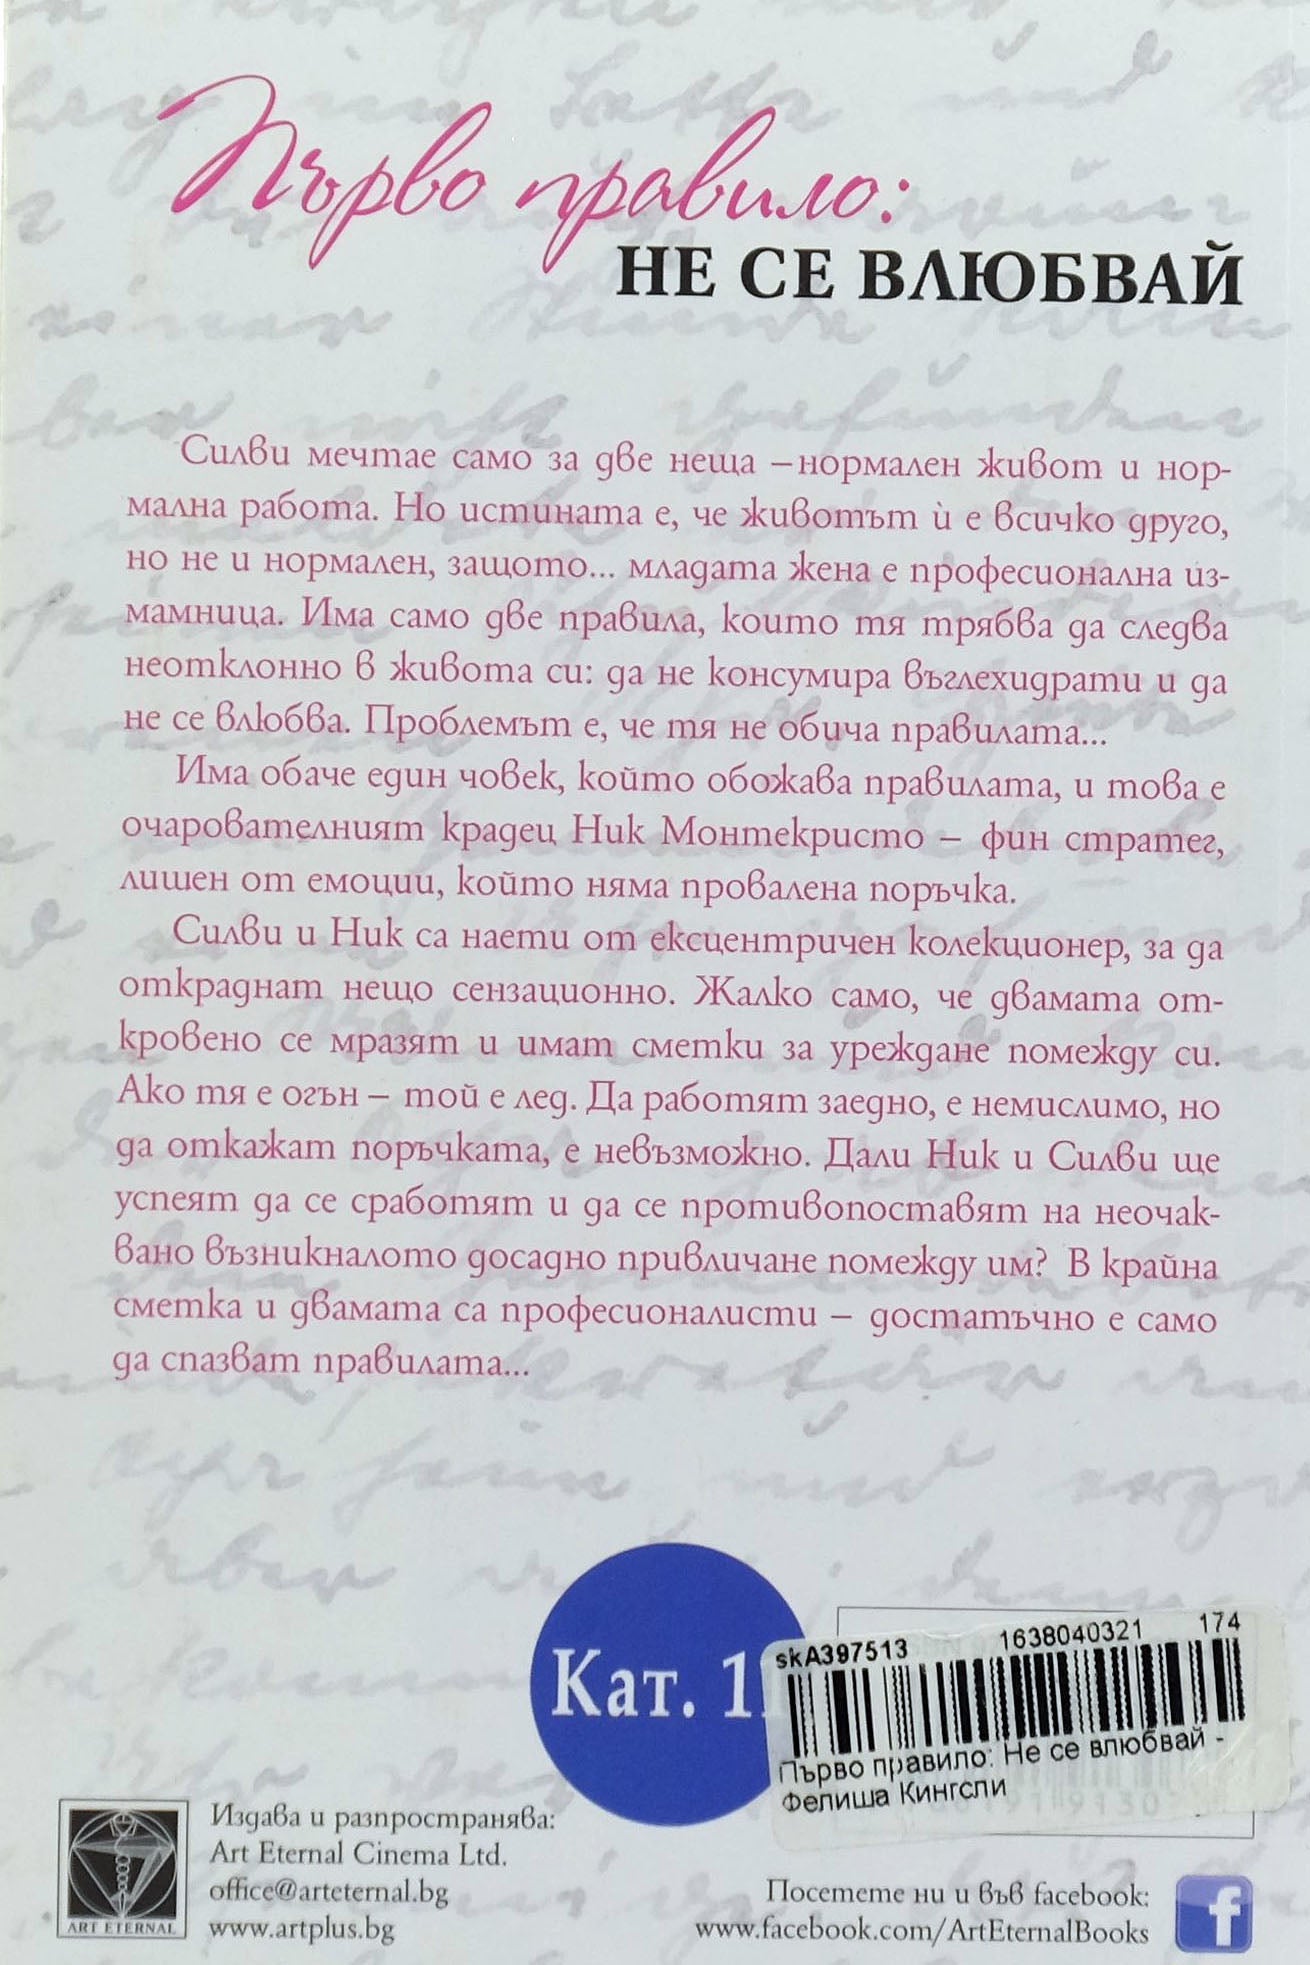 Първо правило:
НЕ СЕ ВЛЮБВАЙ
Силви мечтае само за две неща –нормален живот и нор-
мална работа. Но истината е, че животът ѝ е всичко друго,
но не и нормален, защото... младата жена е професионална из-
мамница. Има само две правила, които тя трябва да следва
неотклонно в живота си: да не консумира въглехидрати и да
не се влюбва. Проблемът е, че тя не обича правилата...
Има обаче един човек, който обожава правилата, и това е
очарователният крадец Ник Монтекристо – фин стратег,
лишен от емоции, който няма провалена поръчка.
Силви и Ник са наети от ексцентричен колекционер, за да
откраднат нещо сензационно. Жалко само, че двамата от-
кровено се мразят и имат сметки за уреждане помежду си.
Ако тя е огън – той е лед. Да работят заедно, е немислимо, но
да откажат поръчката, е невъзможно. Дали Ник и Силви ще
успеят да се сработят и да се противопоставят на неочак-
вано възникналото досадно привличане помежду им? В крайна
сметка и двамата са професионалисти – достатъчно е само
да спазват правилата...
Кат. 1
skA397513 1638040321 174
Първо правило: Не се влюбвай -
Фелиша Кингсли
Издава и разпространява:
Art Eternal Cinema Ltd.
office@arteternal.bg
www.artplus.bg
ART ETERNAL
Посетете ни и във facebook:
www.facebook.com/ArtEternalBooks
f